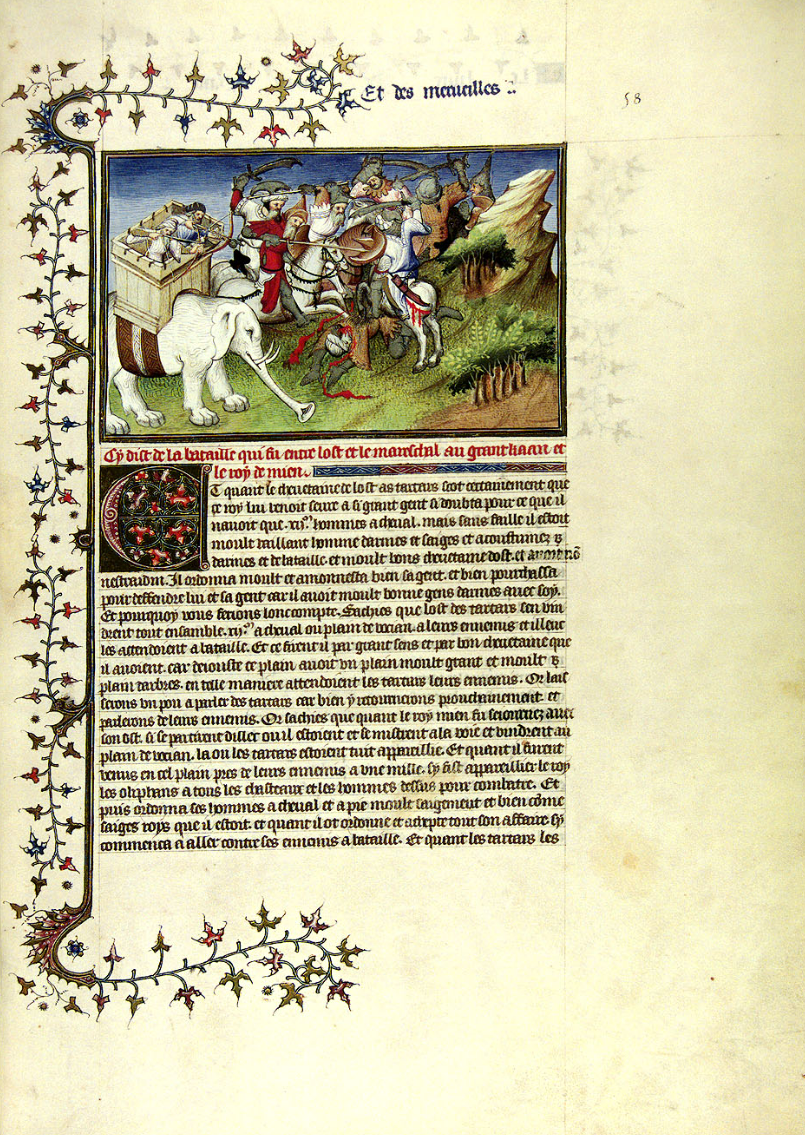 Et des merueilles
58
Cy dist de la bataille qui fu entre lost et le mareschal au grant kaan et
le roy de mien.
Et quant le cheuetaine de lost as tartars scot certainement que
ce roy lui venoit seure a si grant gent si doubta pour ce que il
nauoit que .xii.ᵐ hommes a cheual. mais sans faille il estoit
moult vaillant homme darmes et saiges et acoustumez
darmes et de bataille. et moult bons cheuetaine dost. et
Il ordonna moult et amonnesta bien sa gent. et bien pourchassa
pour deffendre lui et sa gent car il auoit moult bonne gens darmes auec soy.
Et pourquoy vous ferons lonc compte. Sachies que lost des tartars sen vin
drent tout ensamble .xij.ᵐ a cheual ou plain de vocian. a leurs ennemis et illeuc
les attendoient a bataille. Et ce firent il par grant sens et par bon cheuetaine que
il auoient. car deiouste ce plain auoit vn plain moult grant et moult
plain darbres. en telle maniere attendoient les tartars leurs ennemis. Or lais
serons vn pou a parler des tartars car bien y retournerons prouchainnement et
parlerons de leurs ennemis. Or sachies que quant le roy mien fu seiournez auec
son ost. si se partirent dillec ou il estoient et se mistrent a la voie et vindrent au
plain de vocian. la ou les tartars estoient tuit appareillie. Et quant il furent
venus en cel plain pres de leurs ennemis a vne mille. sy fist appareillier le roy
les oliphans a tous les chasteaux et les hommes dessus pour combatre. Et
puis ordonna ses hommes a cheual et a pie moult saigement et bien cōme
saiges roys que il estoit. et quant il ot ordonne et tout son affaire. sy
commenca a aller contre ses ennemis a bataille. Et quant les tartars les